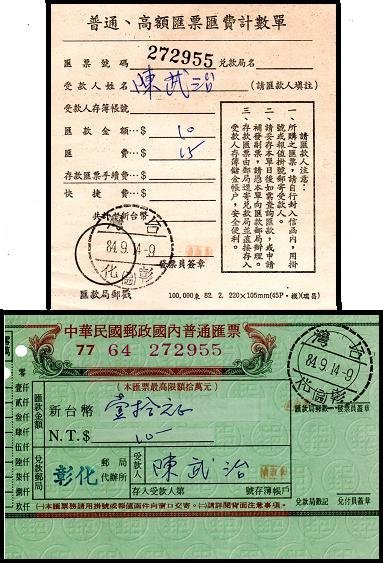 普通、高額匯票匯費計數單
匯票號碼 272955 兑款局名
受款人姓名 陳武治 (請匯款人填註)
受款人存簿帳號
匯款金額…$ 10
匯費…$ 15
存款匯票手續費…$
快捷費…$
共計新台幣
請匯款人注意:
一、所購之匯票,請自行封入信函內,用掛號或報值掛號郵寄受款人。
二、請妥存本單日後如需查詢匯款,或申請補發副票,請憑本單向匯款郵局辦理。
三、存款匯票由郵局逕寄兑款局並直接存入受款人存簿儲金帳戶,安全便利。
台灣
84.9.14-9
彰化
發票員簽章
匯款局郵戳
100,000束 82. 2. 220×105mm(45P・模)(瑞昌)
中華民國郵政國內普通匯票
77 64 272955
(本匯票最高限額拾萬元)
匯款金額
新台幣 壹拾元正
N.T.$ 10
兑款郵局
彰化 郵局 代辦所
受款人 陳武治
存入受款人第 號存簿帳戶
㈠本匯票務請用掛號或報值函件向窗口交寄。㈡請詳閱背面注意事項。
零
壹仟
貳仟
叁仟
肆仟
伍仟
陸仟
柒仟
捌仟
玖仟
台灣
84.9.14-9
彰化
匯款局郵戳 發票員簽章
兑款局戳記 兑付員簽章